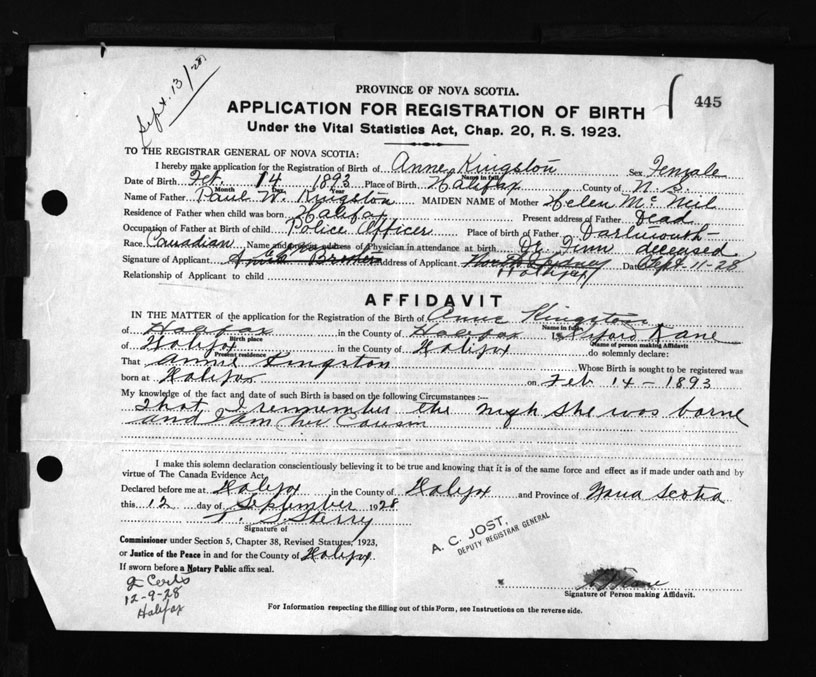 Sept. 13/28
PROVINCE OF NOVA SCOTIA.
445
APPLICATION FOR REGISTRATION OF BIRTH
Under the Vital Statistics Act, Chap. 20, R. S. 1923.
TO THE REGISTRAR GENERAL OF NOVA SCOTIA:
I hereby make application for the Registration of Birth of Anne Kingston Sex Female
Name in full
Date of Birth Feb. 14 1893 Place of Birth Halifax County of N. S.
Month Day Year
Name of Father Paul W. Kingston MAIDEN NAME of Mother Helen Mc Neil
Residence of Father when child was born Halifax Present address of Father Dead
Occupation of Father at Birth of child Police Officer Place of birth of Father Dartmouth
Race Canadian Name and address of Physician in attendance at birth Dr. Finn deceased
Signature of Applicant Address of Applicant North Sydney Date Sept 11-28
Halifax
Relationship of Applicant to child
AFFIDAVIT
IN THE MATTER of the application for the Registration of the Birth of Anne Kingston
Name in full
of Halifax in the County of Halifax I, Kane
Birth place Name of person making Affidavit
of Halifax in the County of Halifax do solemnly declare:
Present residence
That Annie Kingston Whose Birth is sought to be registered was
born at Halifax on Feb 14 - 1893
My knowledge of the fact and date of such Birth is based on the following Circumstances :—
That I remember the nigh she was borne
and I am her Cousin
I make this solemn declaration conscientiously believing it to be true and knowing that it is of the same force and effect as if made under oath and by
virtue of The Canada Evidence Act.
Declared before me at Halifax in the County of Halifax and Province of Nova Scotia
this 12 day of September 1928
Starry
Signature of
Commissioner under Section 5, Chapter 38, Revised Statutes, 1923,
or Justice of the Peace in and for the County of Halifax.
If sworn before a Notary Public affix seal.
A. C. JOST.
DEPUTY REGISTRAR GENERAL
2 Certs
12-9-28
Halifax
x Kane
Signature of Person making Affidavit.
For Information respecting the filling out of this Form, see Instructions on the reverse side.